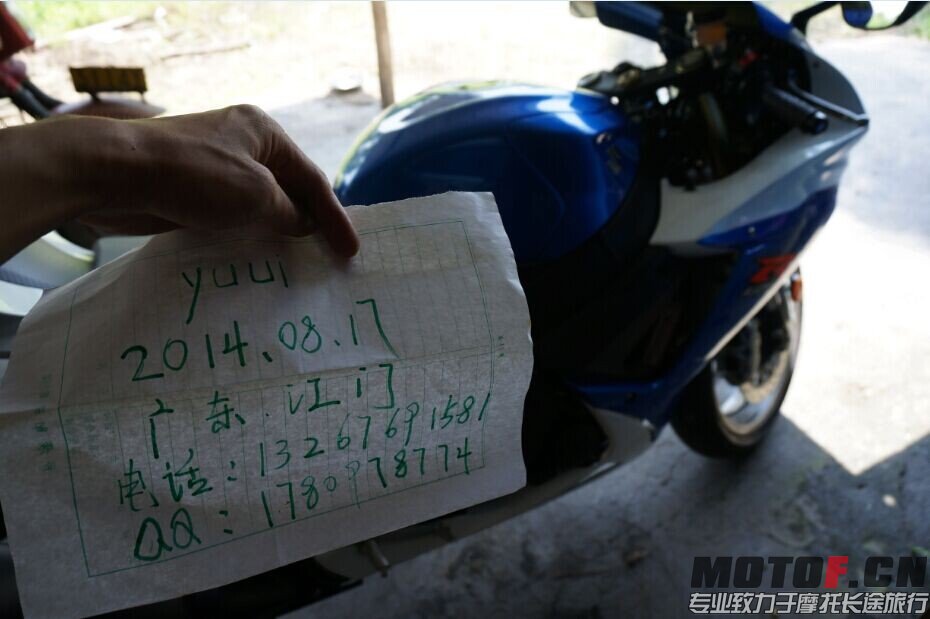 yuui
2014.08.17
广东.江门
电话:13267691581
QQ:1780978774
R
MOTOF.CN
专业致力于摩托长途旅行